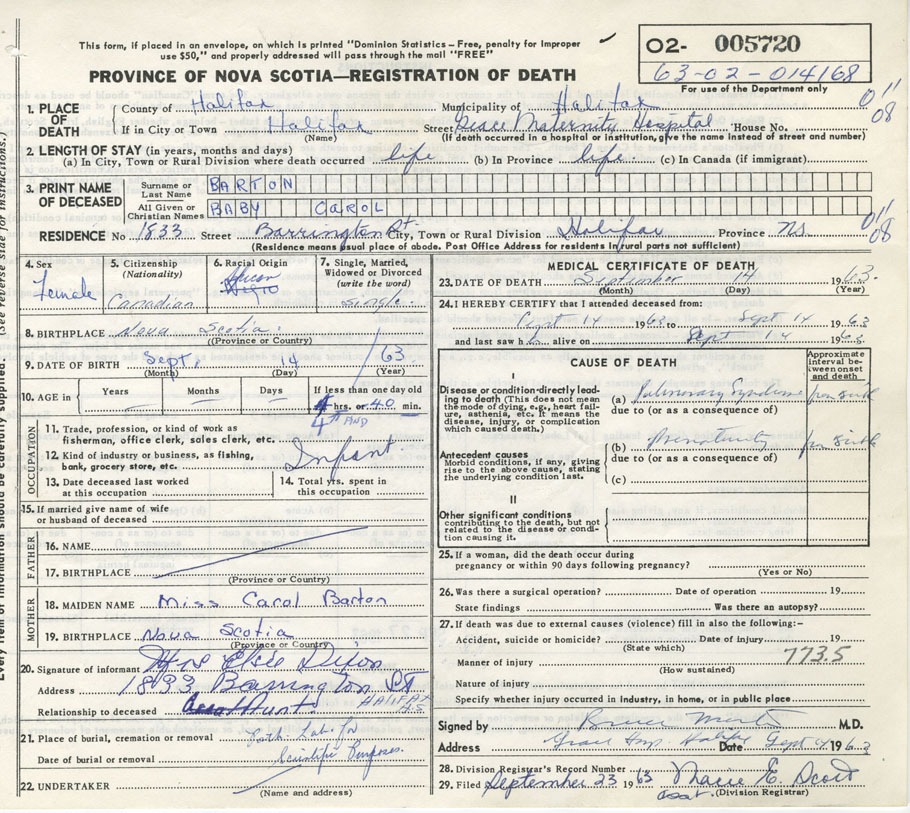 This form, if placed in an envelope, on which is printed "Dominion Statistics - Free, penalty for improper
use $50," and properly addressed will pass through the mail "FREE"
O2- 005720
63-02-014168
For use of the Department only
PROVINCE OF NOVA SCOTIA—REGISTRATION OF DEATH
0 11
08
1. PLACE OF DEATH
County of Halifax Municipality of Halifax
If in City or Town Halifax (Name) Street Grace Maternity Hospital House No.
(If death occurred in a hospital or institution, give the name instead of street and number)
2. LENGTH OF STAY (in years, months and days)
(a) In City, Town or Rural Division where death occurred life (b) In Province life. (c) In Canada (if immigrant)
3. PRINT NAME OF DECEASED
Surname or Last Name BARTON
All Given or Christian Names BABY CAROL
RESIDENCE No 1833 Street Barrington St. City, Town or Rural Division Halifax Province NS
0 11
08
(Residence means usual place of abode. Post Office Address for residents in rural parts not sufficient)
4. Sex Female
5. Citizenship (Nationality) Canadian
6. Racial Origin
7. Single, Married, Widowed or Divorced (write the word) Single.
8. BIRTHPLACE Nova Scotia.
(Province or Country)
9. DATE OF BIRTH Sept. 14 / 63
(Month) (Day) (Year)
10. AGE in Years Months Days If less than one day old
4 hrs. or 40 min.
4 AND
OCCUPATION
11. Trade, profession, or kind of work as
fisherman, office clerk, sales clerk, etc.
12. Kind of industry or business, as fishing,
bank, grocery store, etc.
Infant
13. Date deceased last worked
at this occupation
14. Total yrs. spent in
this occupation
15. If married give name of wife
or husband of deceased
FATHER
16. NAME
17. BIRTHPLACE
(Province or Country)
MOTHER
18. MAIDEN NAME Miss Carol Barton
19. BIRTHPLACE Nova Scotia
(Province or Country)
20. Signature of informant Mrs Elsie Dixon
Address 1833 Barrington St
HALIFAX
N.S.
Relationship to deceased Aunt
21. Place of burial, cremation or removal Path. Lab. for
Date of burial or removal Scientific Purposes.
22. UNDERTAKER
(Name and address)
MEDICAL CERTIFICATE OF DEATH
23. DATE OF DEATH September 14 1963
(Month) (Day) (Year)
24. I HEREBY CERTIFY that I attended deceased from:
Sept 14 1963 to Sept 14 1963
and last saw h alive on Sept 14 1963
CAUSE OF DEATH
Approximate interval between onset and death
I
Disease or condition directly leading to death (This does not mean the mode of dying, e.g., heart failure, asthenia, etc. It means the disease, injury, or complication which caused death.)
(a) Pulmonary Syndrome from birth
due to (or as a consequence of)
Antecedent causes
Morbid conditions, if any, giving rise to the above cause, stating the underlying condition last.
(b) Prematurity from birth
due to (or as a consequence of)
(c)
II
Other significant conditions contributing to the death, but not related to the disease or condition causing it.
25. If a woman, did the death occur during
pregnancy or within 90 days following pregnancy?
(Yes or No)
26. Was there a surgical operation? Date of operation 19
State findings Was there an autopsy?
27. If death was due to external causes (violence) fill in also the following:-
Accident, suicide or homicide? Date of injury 19
(State which)
773.5
Manner of injury
(How sustained)
Nature of injury
Specify whether injury occurred in industry, in home, or in public place
Signed by Bruce M.D.
Address Grace Hosp Halifax Date Sept 1963
28. Division Registrar's Record Number
29. Filed September 23 1963 Marie E. Scott
asst. (Division Registrar)
(See reverse side for instructions.)
Every item of information should be carefully supplied.